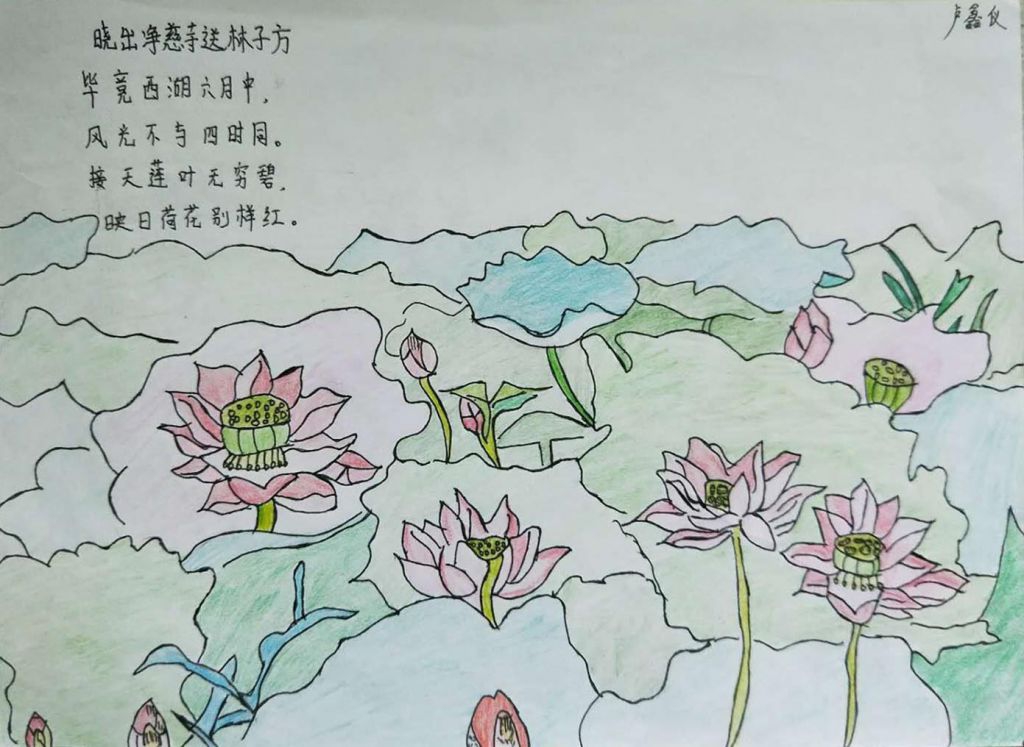 卢鑫仪
晓出净慈寺送林子方
毕竟西湖六月中，
风光不与四时同。
接天莲叶无穷碧，
映日荷花别样红。